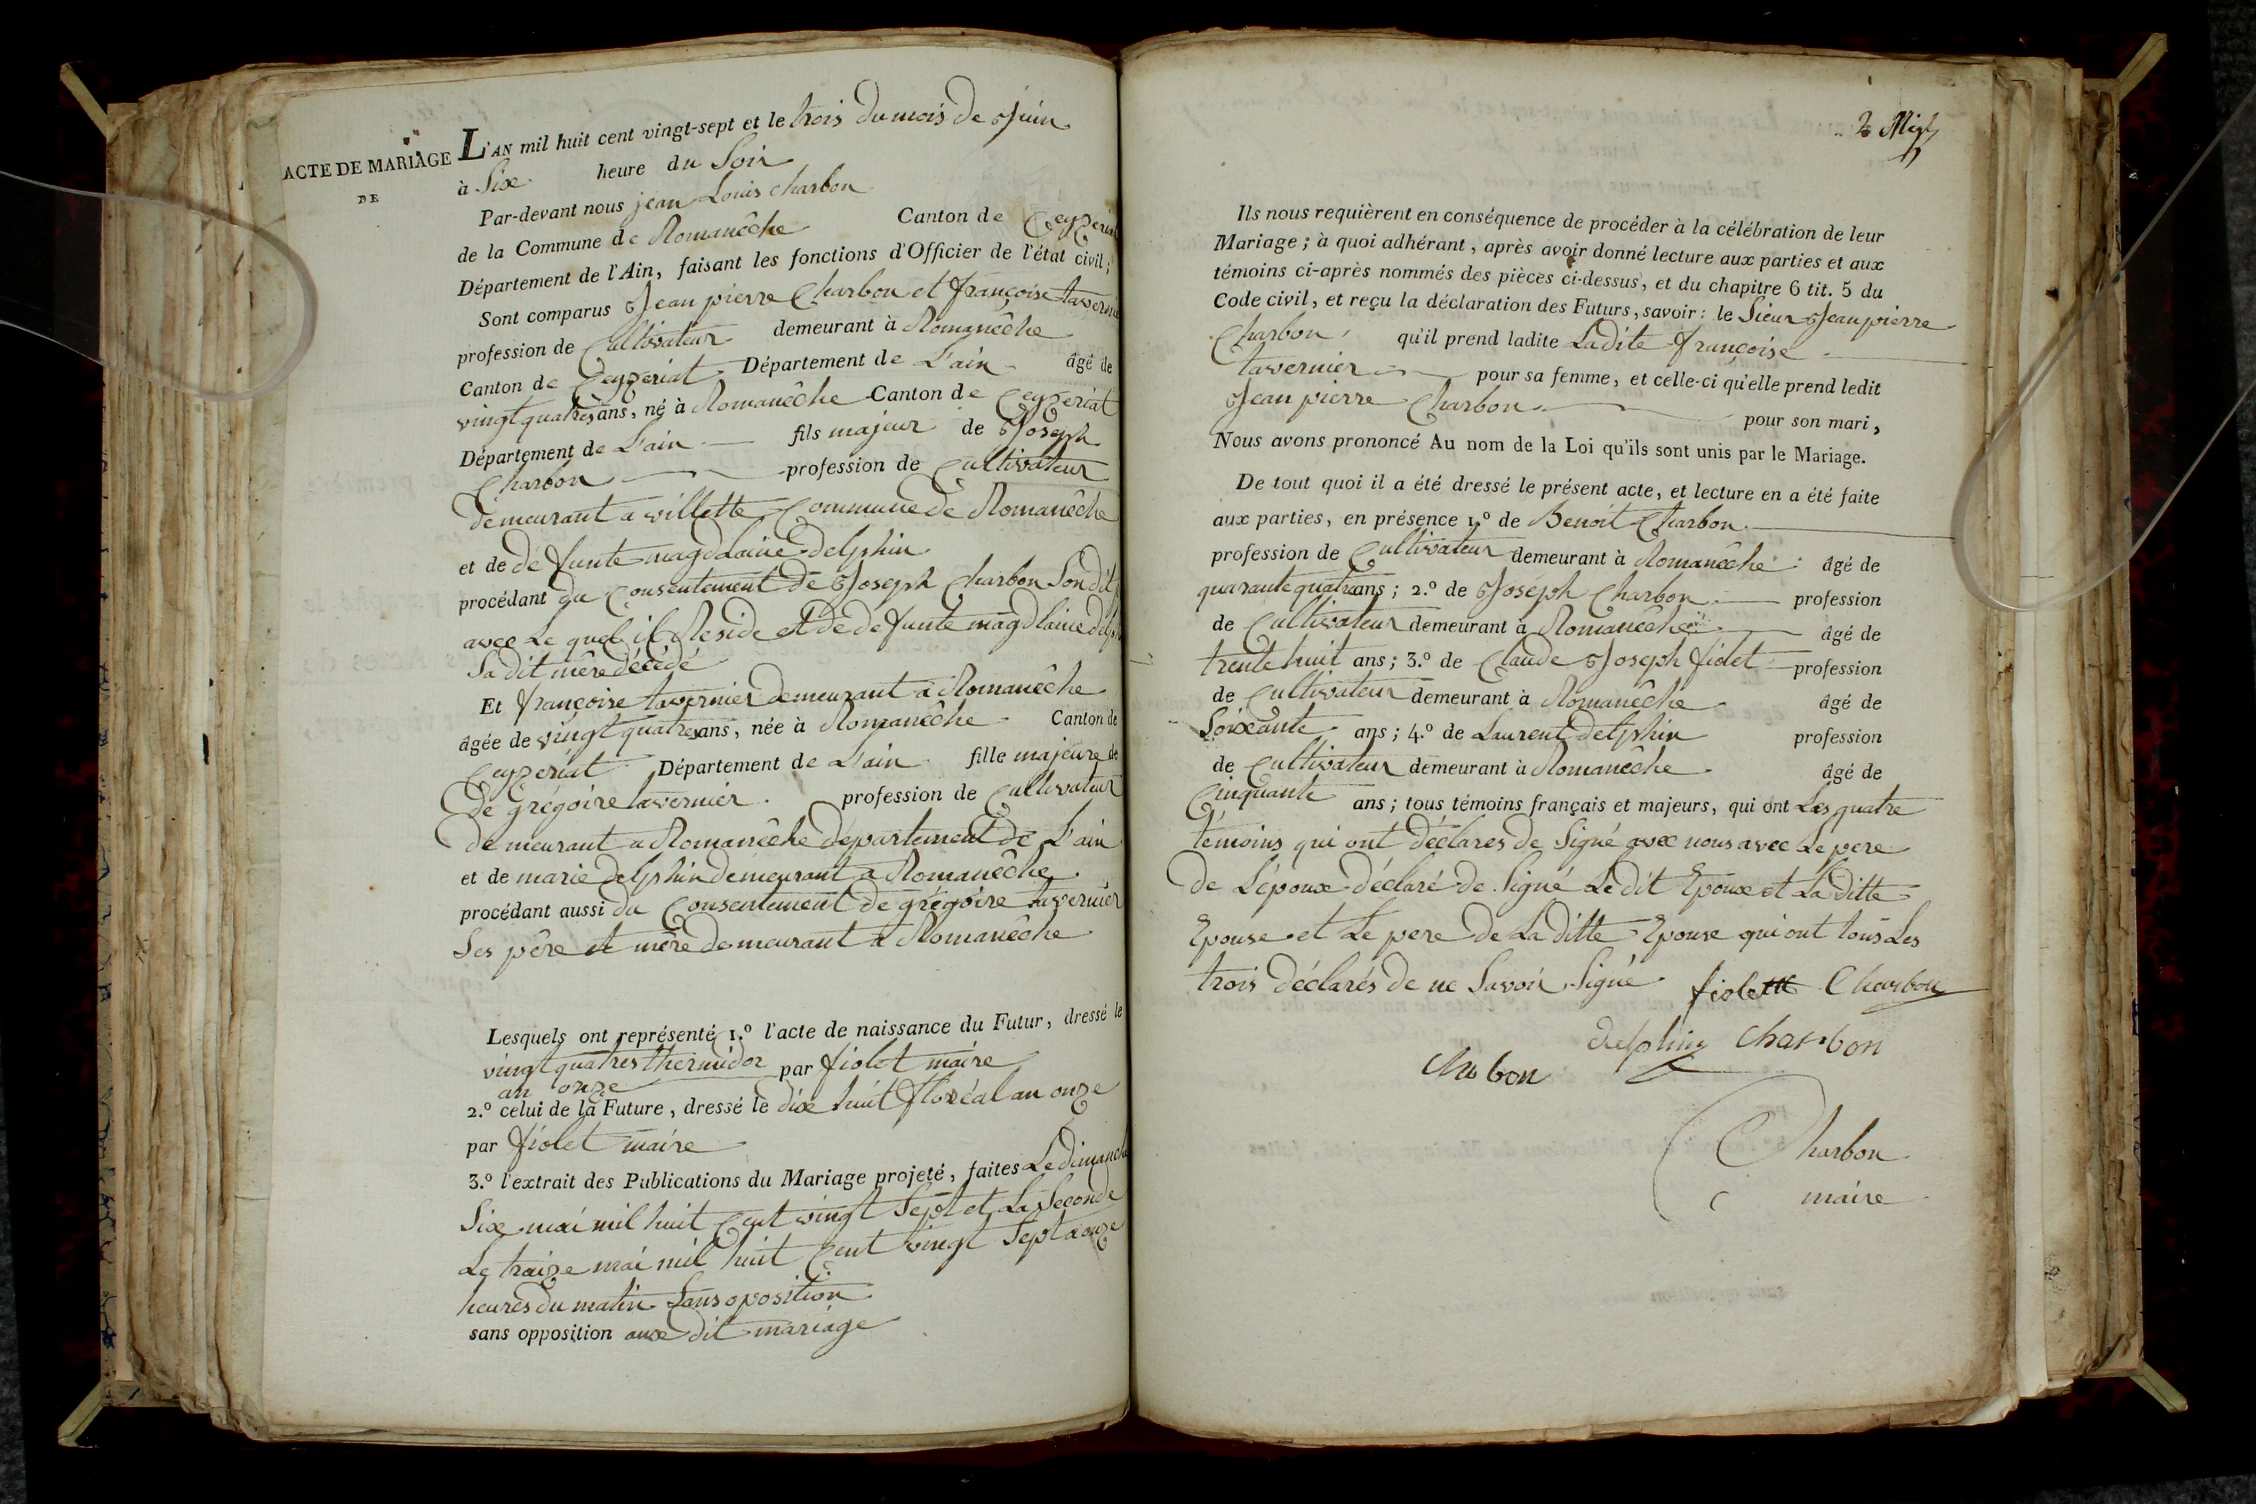 ACTE DE MARIAGE
DE
L'AN mil huit cent vingt-sept et le trois du mois de Juin
à Six heure du Soir
Par-devant nous jean Louis charbon
de la Commune de Romanêche Canton de Ceyzeriat
Département de l'Ain, faisant les fonctions d'Officier de l'état civil;
Sont comparus Jean pierre Charbon et françoise tavernier
profession de Cultivateur demeurant à Romanêche
Canton de Ceyzeriat Département de L'ain âgé de
vingt quatres ans, né à Romanêche Canton de Ceyzeriat
Département de L'ain fils majeur de Joseph
Charbon profession de Cultivateur
demeurant a villette Commune de Romanêche
et de défunte magdelaine delphin
procédant du Consentement de Joseph Charbon Son dit
avec Le quel il Reside et de defunte magdlaine delph
Sa dit mère décédé
Et françoise tavernier demeurant à Romanêche
âgée de vingt quatres ans, née à Romanêche Canton de
Ceyzeriat Département de L'ain fille majeure de
de Grégoire tavernier profession de Cultivateur
demeurant a Romanêche département de L'ain
et de marie delphin demeurant a Romanêche
procédant aussi du Consentement de grégoire tavernier
Ses père et mère demeurant a Romanêche
Lesquels ont représenté 1.º l'acte de naissance du Futur, dressé le
vingt quatres thermidor par fiolet maire
an onze
2.º celui de la Future, dressé le dix huit floréal an onze
par fiolet maire
3.º l'extrait des Publications du Mariage projeté, faites Le dimanche
Six mai mil huit Cent vingt Sept et La Seconde
Le traize mai mil huit Cent vingt Sept a onze
heures du matin Sans oposition
sans opposition aux dit mariage
Ils nous requièrent en conséquence de procéder à la célébration de leur
Mariage; à quoi adhérant, après avoir donné lecture aux parties et aux
témoins ci-après nommés des pièces ci-dessus, et du chapitre 6 tit. 5 du
Code civil, et reçu la déclaration des Futurs, savoir: le Sieur Jean pierre
Charbon qu'il prend ladite Ladite françoise
tavernier pour sa femme, et celle-ci qu'elle prend ledit
Jean pierre Charbon pour son mari,
Nous avons prononcé Au nom de la Loi qu'ils sont unis par le Mariage.
De tout quoi il a été dressé le présent acte, et lecture en a été faite
aux parties, en présence 1.º de Benoit Charbon
profession de Cultivateur demeurant à Romanêche âgé de
quarante quatre ans; 2.º de Joséph Charbon profession
de Cultivateur demeurant à Romanêche âgé de
trente huit ans; 3.º de Claude Joseph fiolet profession
de Cultivateur demeurant à Romanêche âgé de
Soixante ans; 4.º de Laurent delphin profession
de Cultivateur demeurant à Romanêche âgé de
Cinquante ans; tous témoins français et majeurs, qui ont Les quatre
témoins qui ont déclares de Signé avec nous avec Le pere
de L'époux déclaré de Signé Le dit Epoux et La ditte
Epouse et Le pere de La ditte Epouse qui ont tous Les
trois déclarés de ne Savoir Signé fiolet Charbon
delphin charbon
Charbon
maire